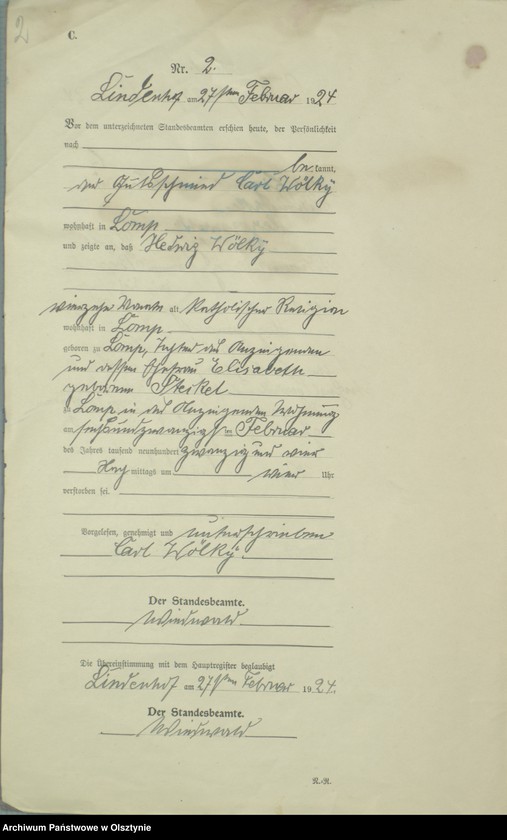 2
C.
Nr. 2.
Lindenhof am 27ten Februar 1924
Vor dem unterzeichneten Standesbeamten erschien heute, der Persönlichkeit
nach
bekannt,
der Gutsschmied Carl Wölky
wohnhaft in Lomp
und zeigte an, daß Hedwig Wölky
vierzehn Monate alt Katholischer Religion
wohnhaft in Lomp
geboren zu Lomp, Tochter des Anzeigenden
und dessen Ehefrau Elisabeth
geborenen
zu Lomp in des Anzeigenden Wohnung
am sechsundzwanzigsten Februar
des Jahres tausend neunhundert zwanzig und vier
Nach mittags um vier Uhr
verstorben sei.
Vorgelesen, genehmigt und unterschrieben
Carl Wölky.
Der Standesbeamte.
Wiedwald
Die Übereinstimmung mit dem Hauptregister beglaubigt
Lindenhof am 27ten Februar 1924.
Der Standesbeamte.
Wiedwald
R.-R.
Archiwum Państwowe w Olsztynie